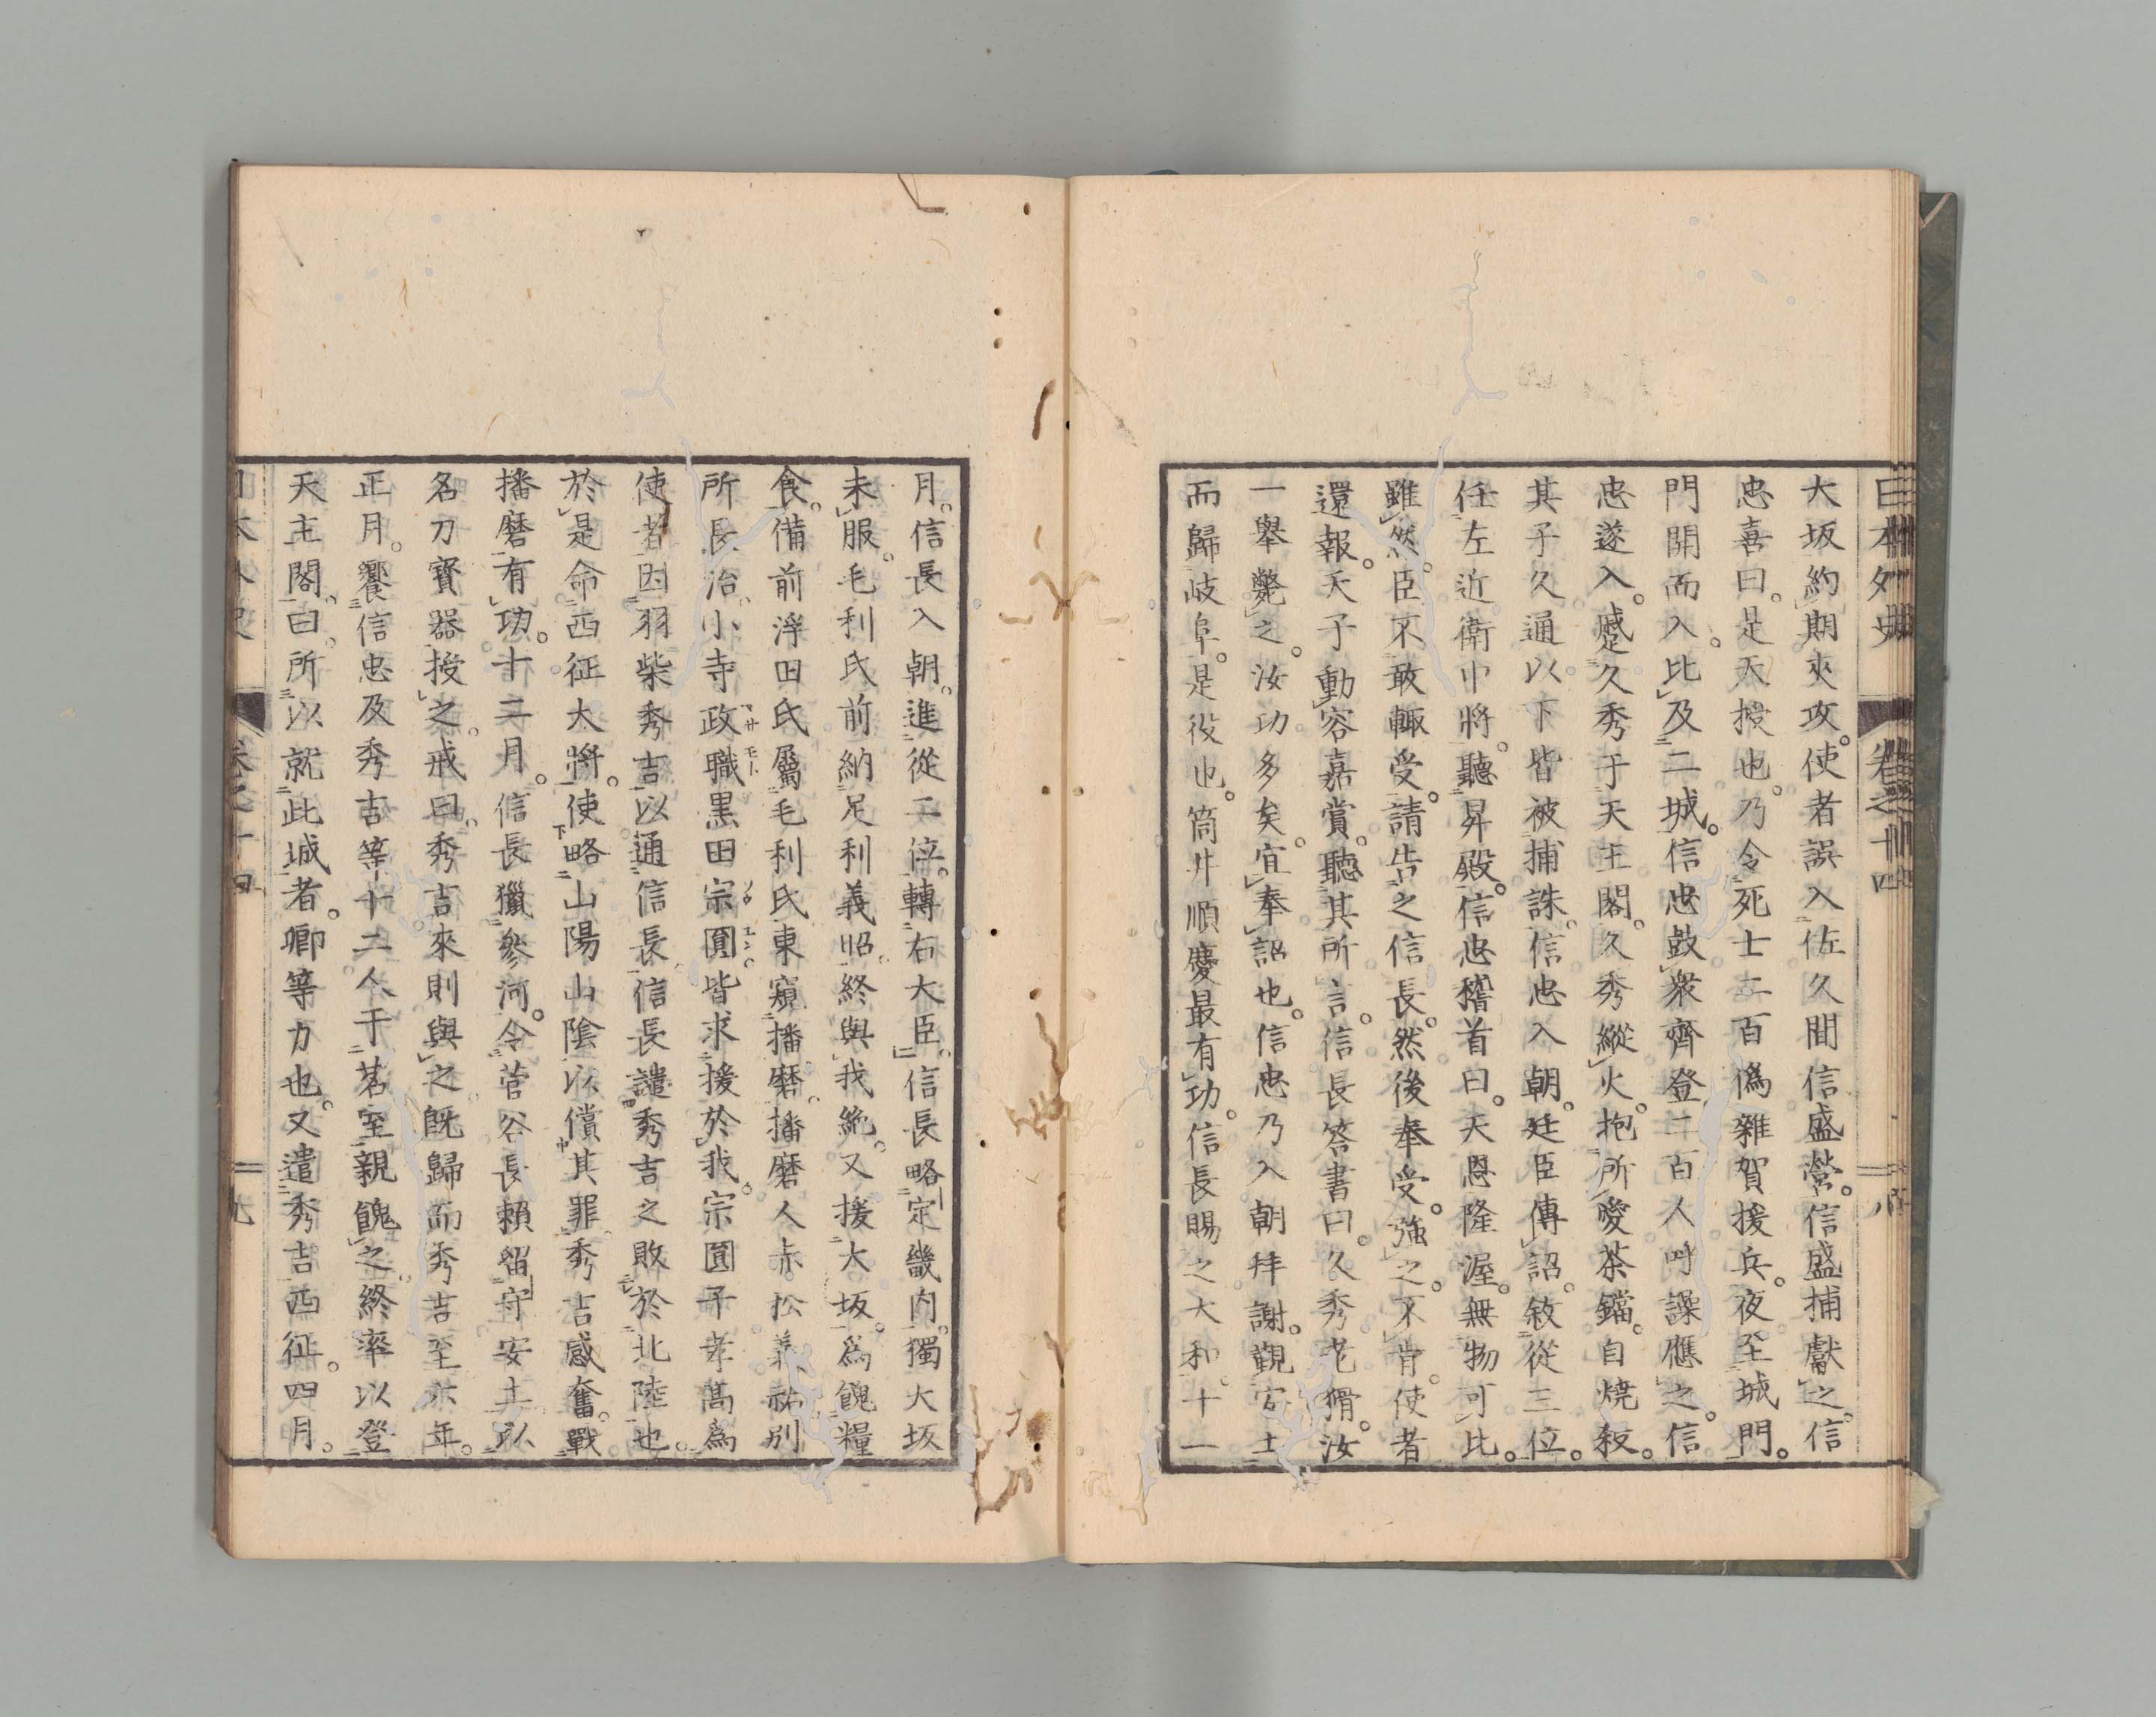 日本外史 卷之十四 八
大坂約期夾攻。使者誤入佐久間信盛營。信盛捕獻之。信
忠喜曰。是天授也。乃令死士二百爲雜賀援兵。夜至城門。
門開而入。比及二城。信忠鼓衆齊登。二百人呼譟應之。信
忠遂入。蹙久秀于天主閣。久秀縱火。抱所愛茶鐺。自燒殺。
其子久通以下皆被捕誅。信忠入朝。廷臣傳詔。敘從三位。
任左近衛中將。聽昇殿。信忠稽首曰。天恩隆渥。無物可比。
雖然。臣不敢輙受。請告之信長。然後奉受。強之。不肯。使者
還報。天子動容嘉賞。聽其所言。信長答書曰。久秀老猾。汝
一舉斃之。汝功多矣。宜奉詔也。信忠乃入朝拜謝。觀安土
而歸岐阜。是役也。筒井順慶最有功。信長賜之大和。十一
月。信長入朝。進從二位。轉右大臣。信長略定畿内。獨大坂
未服。毛利氏前納足利義昭。終與我絶。又援大坂。爲餽糧
食。備前浮田氏屬毛利氏。東窺播磨。播磨人赤松義祐別
所長治。小寺政職黒田宗圓。皆求援於我。宗圓子孝高爲
使者。因羽柴秀吉以通信長。信長譴秀吉之敗於北陸也。
於是命西征大將。使略山陽山陰以償其罪。秀吉感奮。戰
播磨有功。十二月。信長獵參河。令菅谷長賴留守安土。以
名刀寶器授之。戒曰。秀吉來則與之。既歸而秀吉至。亦年。
正月。饗信忠及秀吉等十二人于茗室。親餽之。終率以登
天主閣。曰。所以就此城者。卿等力也。又遣秀吉西征。四月。
日本外史 卷之十四 九